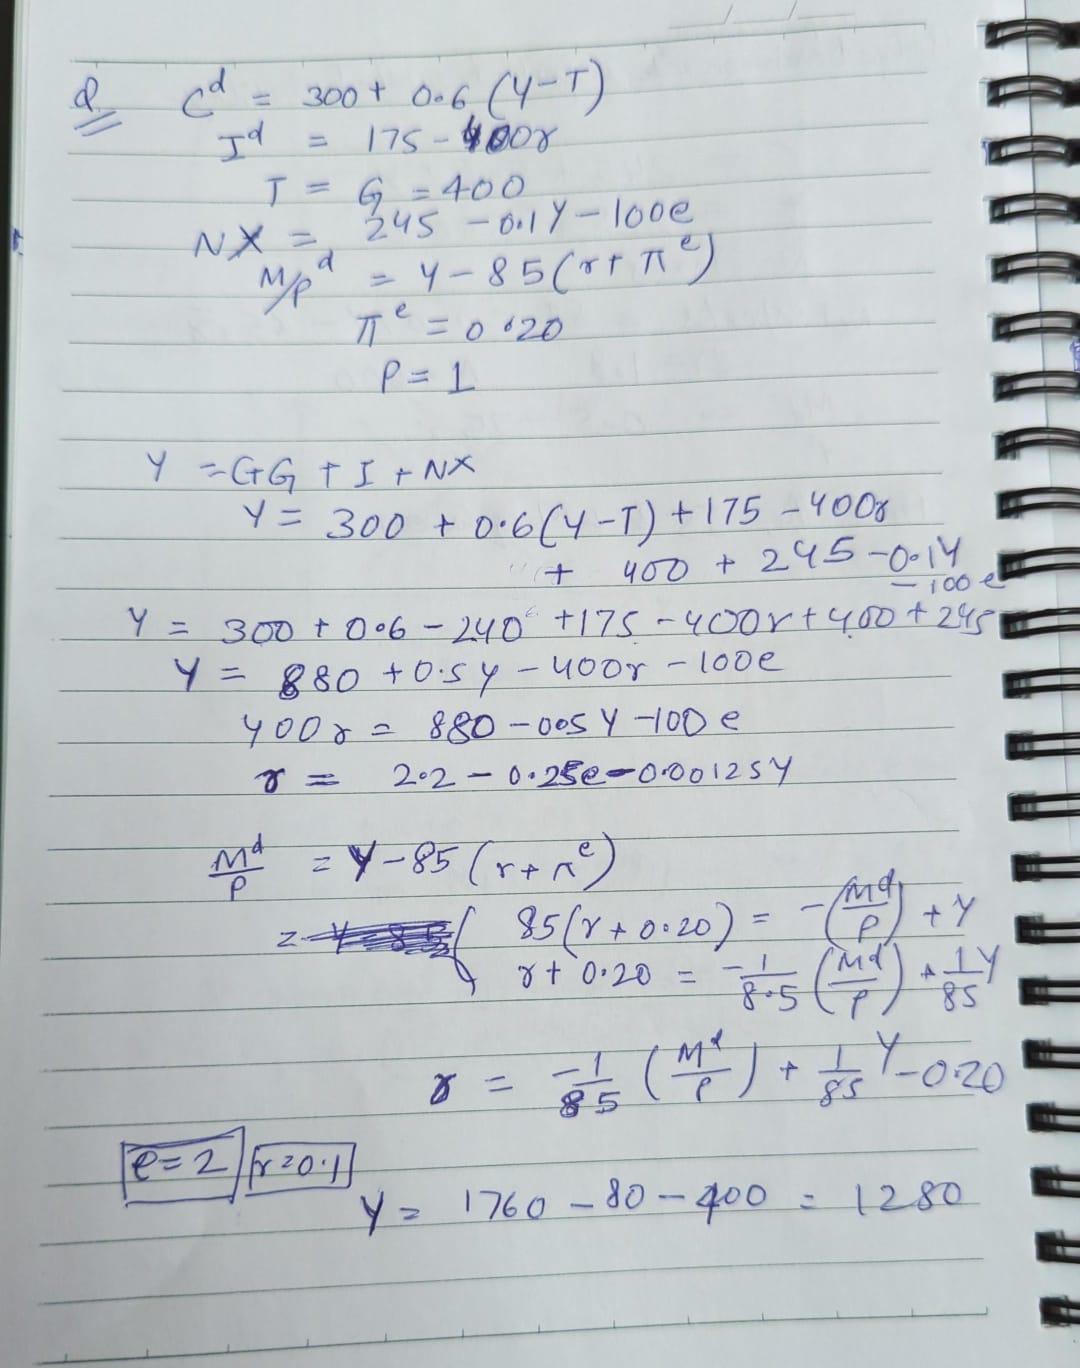 Q. C^d = 300 + 0.6 (Y-T)
I^d = 175 - 400r
T = G = 400
NX = 245 - 0.1Y - 100e
M/P^d = Y - 85(r + π^e)
π^e = 0.20
P = 1
Y = C+G + I + NX
Y = 300 + 0.6(Y-T) + 175 - 400r
+ 400 + 245 - 0.1Y
- 100e
Y = 300 + 0.6 - 240 + 175 - 400r + 400 + 245
Y = 880 + 0.5Y - 400r - 100e
400r = 880 - 0.5Y - 100e
r = 2.2 - 0.25e - 0.00125Y
M^d/P = Y - 85 (r + π^e)
= 85(r + 0.20) = -(M^d/P) + Y
r + 0.20 = -1/8.5 (M^d/P) + 1/85 Y
r = -1/85 (M^d/P) + 1/85 Y - 0.20
e = 2 r = 0.1
Y = 1760 - 80 - 400 = 1280